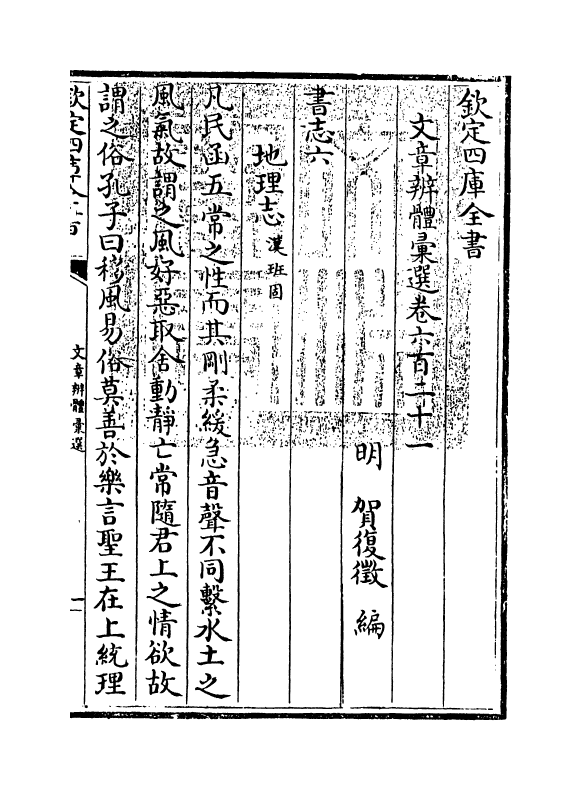 欽定四庫全書
文章辨體彙選卷六百二十一
明 賀復徵 編
書志六
地理志 漢班固
凡民函五常之性而其剛柔緩急音聲不同繫水土之
風氣故謂之風好惡取舍動靜亡常隨君上之情欲故
謂之俗孔子曰移風易俗莫善於樂言聖王在上統理
欽定四庫全書
文章辨體彙選
一